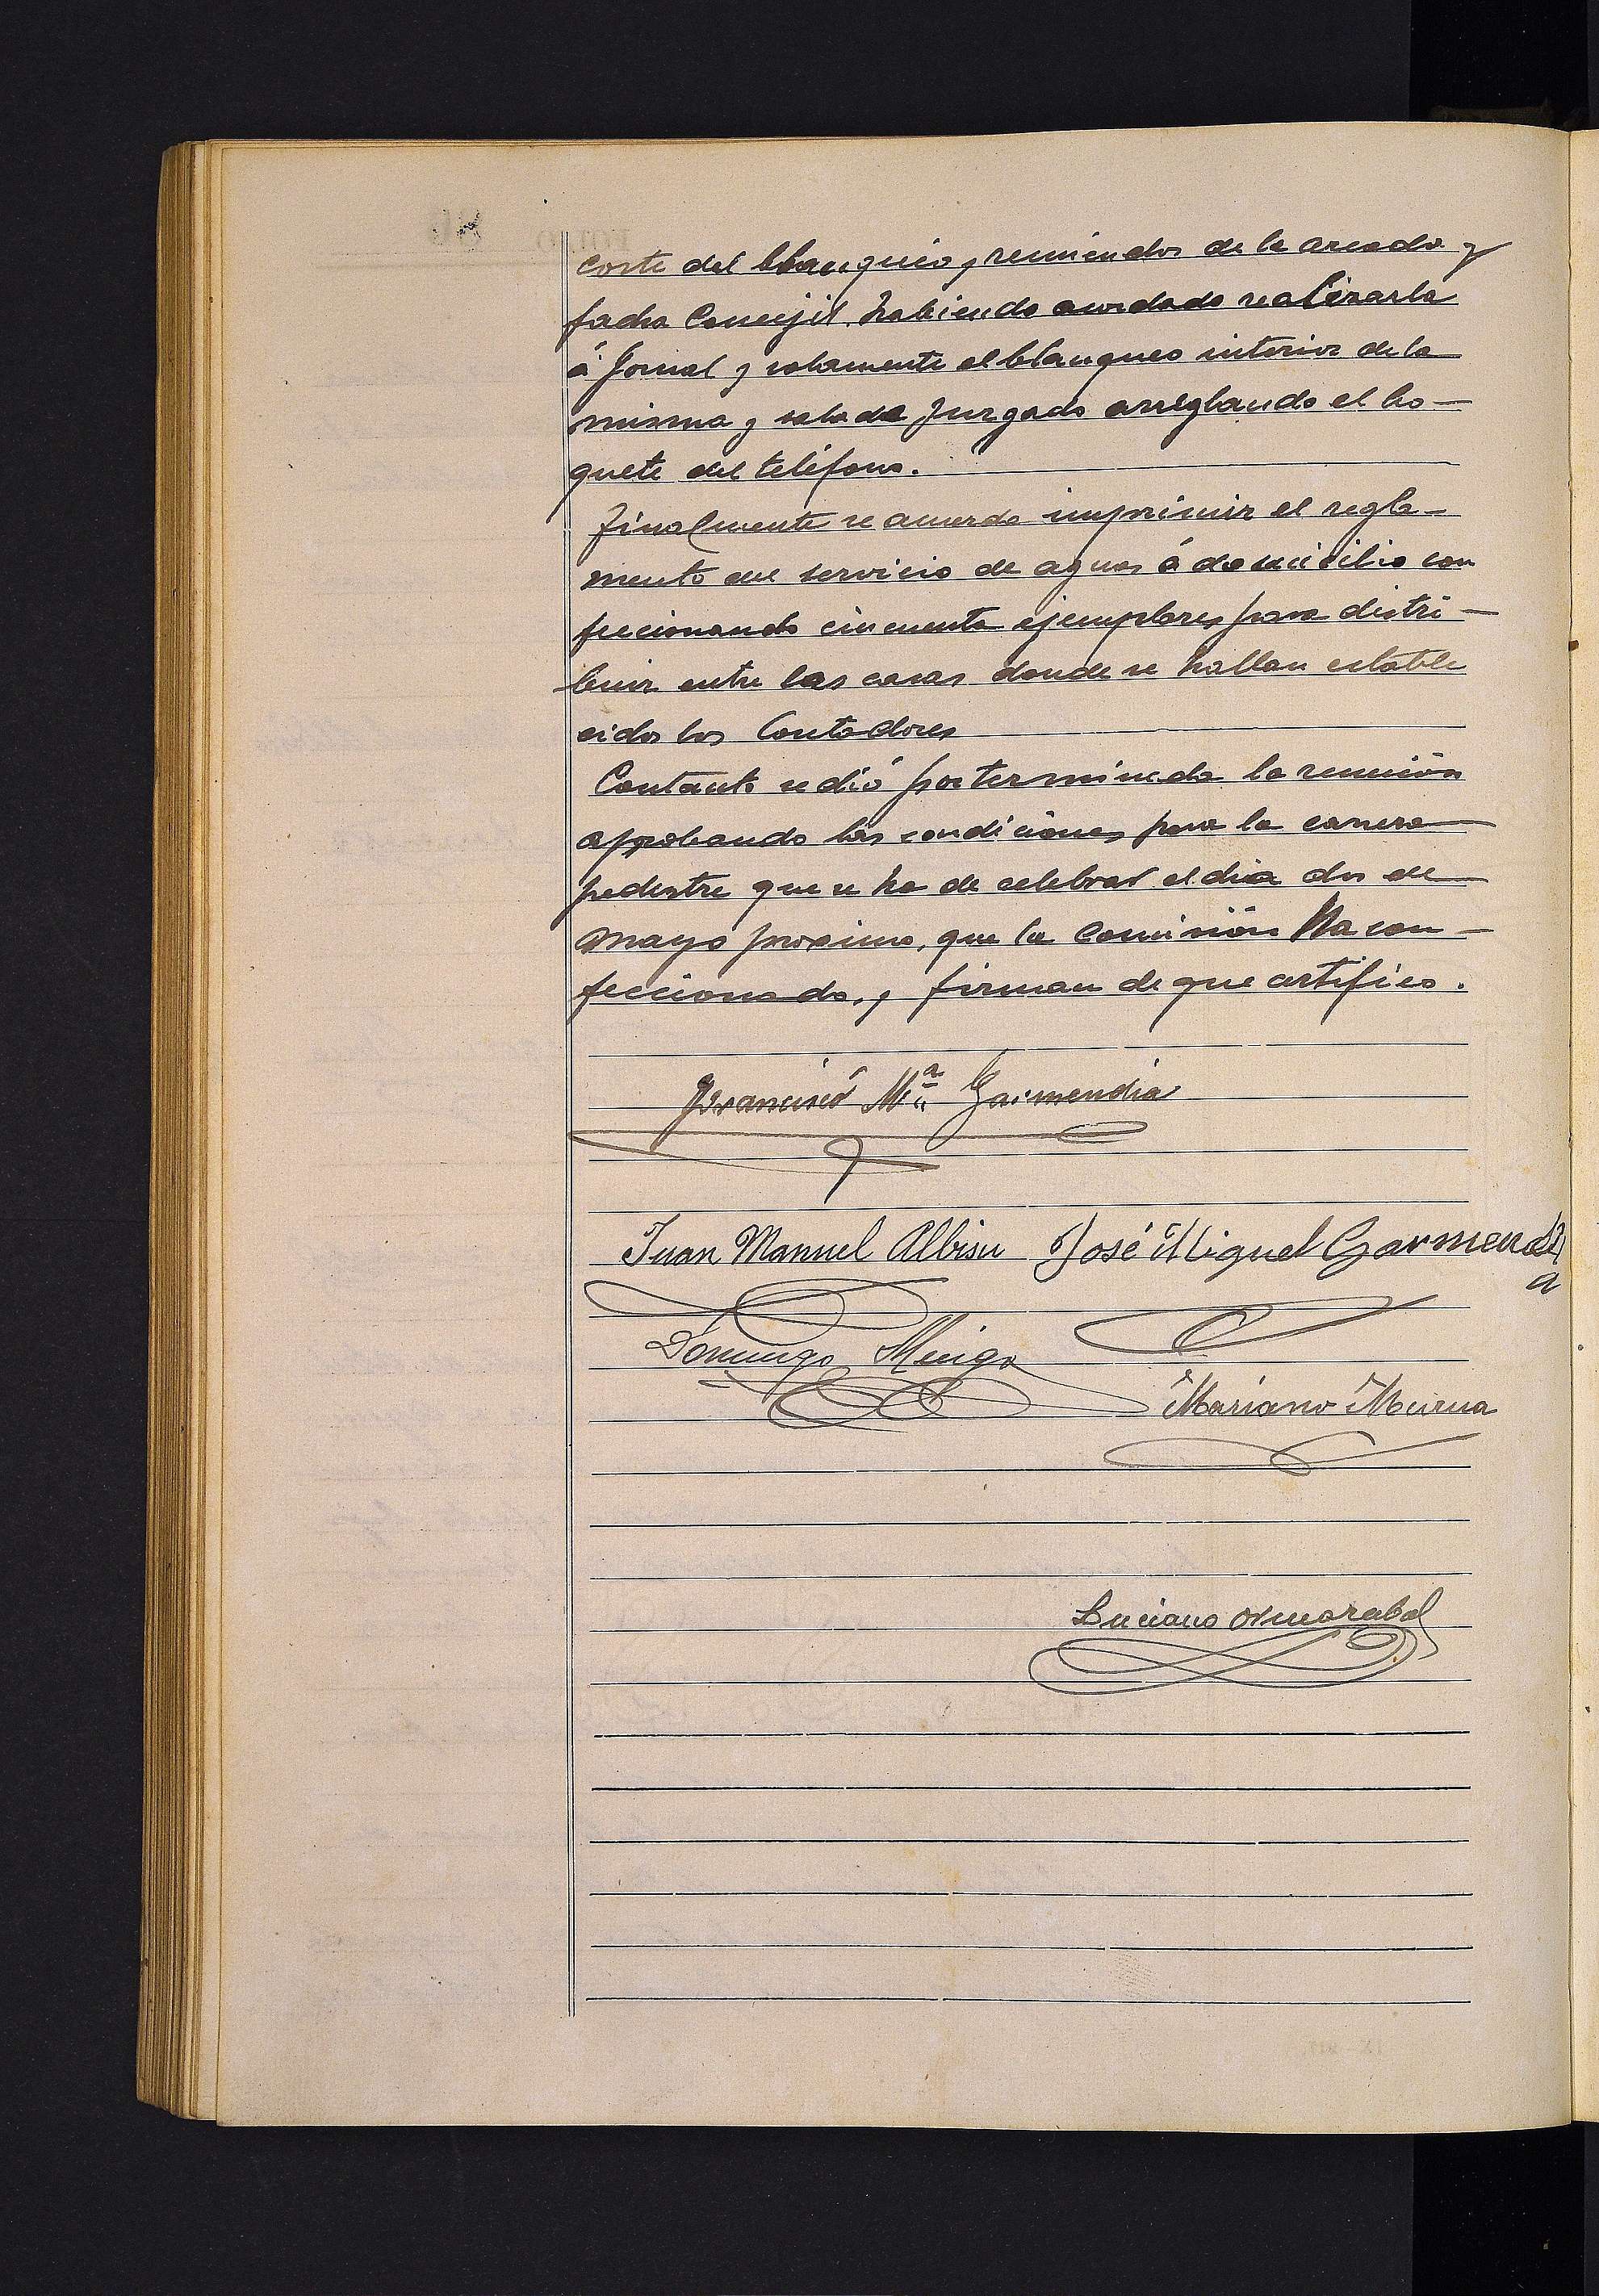 coste del blanqueo y remiendos de la arcada y
facha Concejil, habiendo acordado realizarla
á Jornal y solamente el blanqueo interior de la
misma y sala de Juzgado arreglando el bo-
quete del teléfono.
Finalmente se acuerda imprimir el regla-
mento del servicio de aguas á domicilio con
feccionando cincuenta ejemplares para distri-
buir entre las casas donde se hallan estable
cidos los Contadores
Contanto se dió por terminada la reunión
aprobando las condiciones para la carrera
pedestre que se ha de celebrar el dia dos de
Mayo proximo, que la Comisión Ha con-
feccionado, y firman de que certifico.
Francisco Mª Garmendia
Juan Manuel Albisu José Miguel Garmendi
a
Domingo
Mariano Murua
Luciano